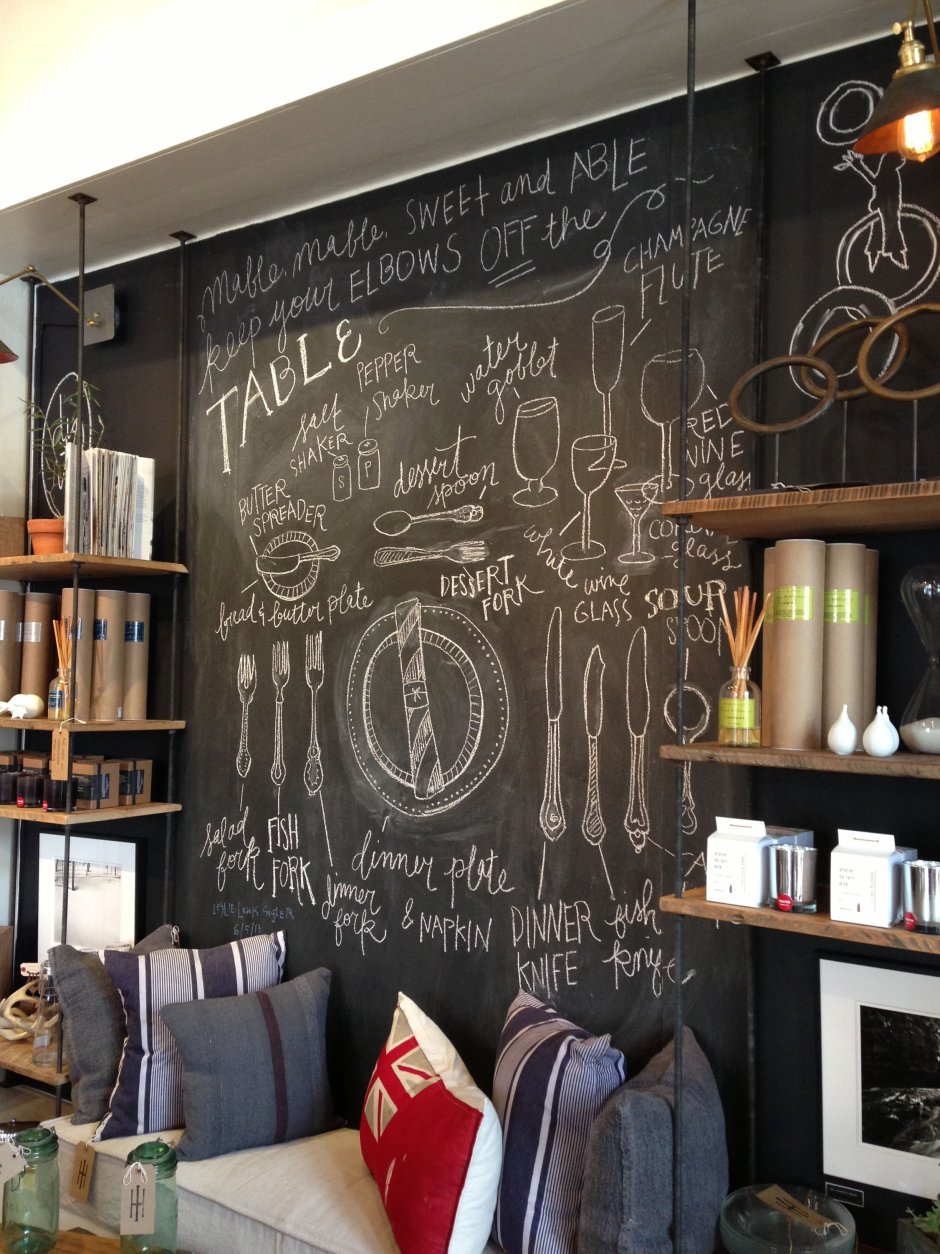 mable, mable, SWEET and ABLE
keep your ELBOWS OFF the
TABLE
CHAMPAGNE
FLUTE
PEPPER
shaker
water
goblet
salt
SHAKER
S
P
RED
WINE
glass
dessert
spoon
BUTTER
SPREADER
glass
white wine
GLASS
DESSERT
FORK
bread & butter plate
SOUP
SPOON
K
salad
fork
FISH
FORK
dinner
fork
dinner plate
& NAPKIN
DINNER
KNIFE
fish
knife
LESLIE LEWIS SIGLER
6/5/13
H